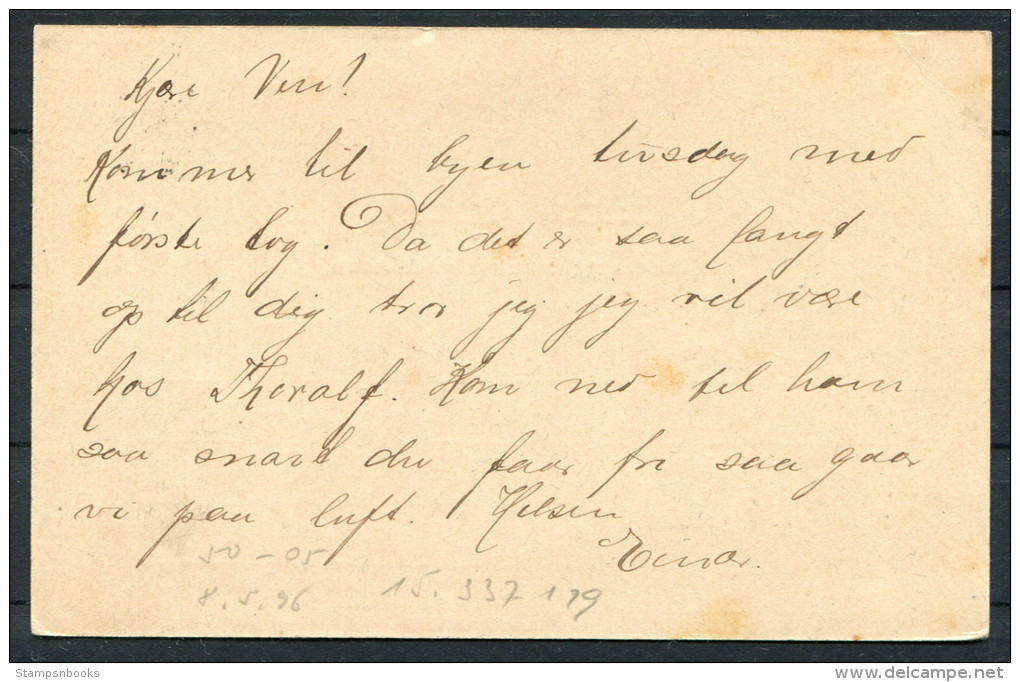 Kjære Ven!
Kommer til byen tirsdag med
første tog. Da det er saa langt
op til dig tror jeg jeg vil være
hos Thoralf. Kom ned til ham
saa snart du faar fri saa gaar
vi paa luft. Hilsen
Einar.
50-05
8.5.96 15.337 179
Stampsnbooks
www.delcampe.net